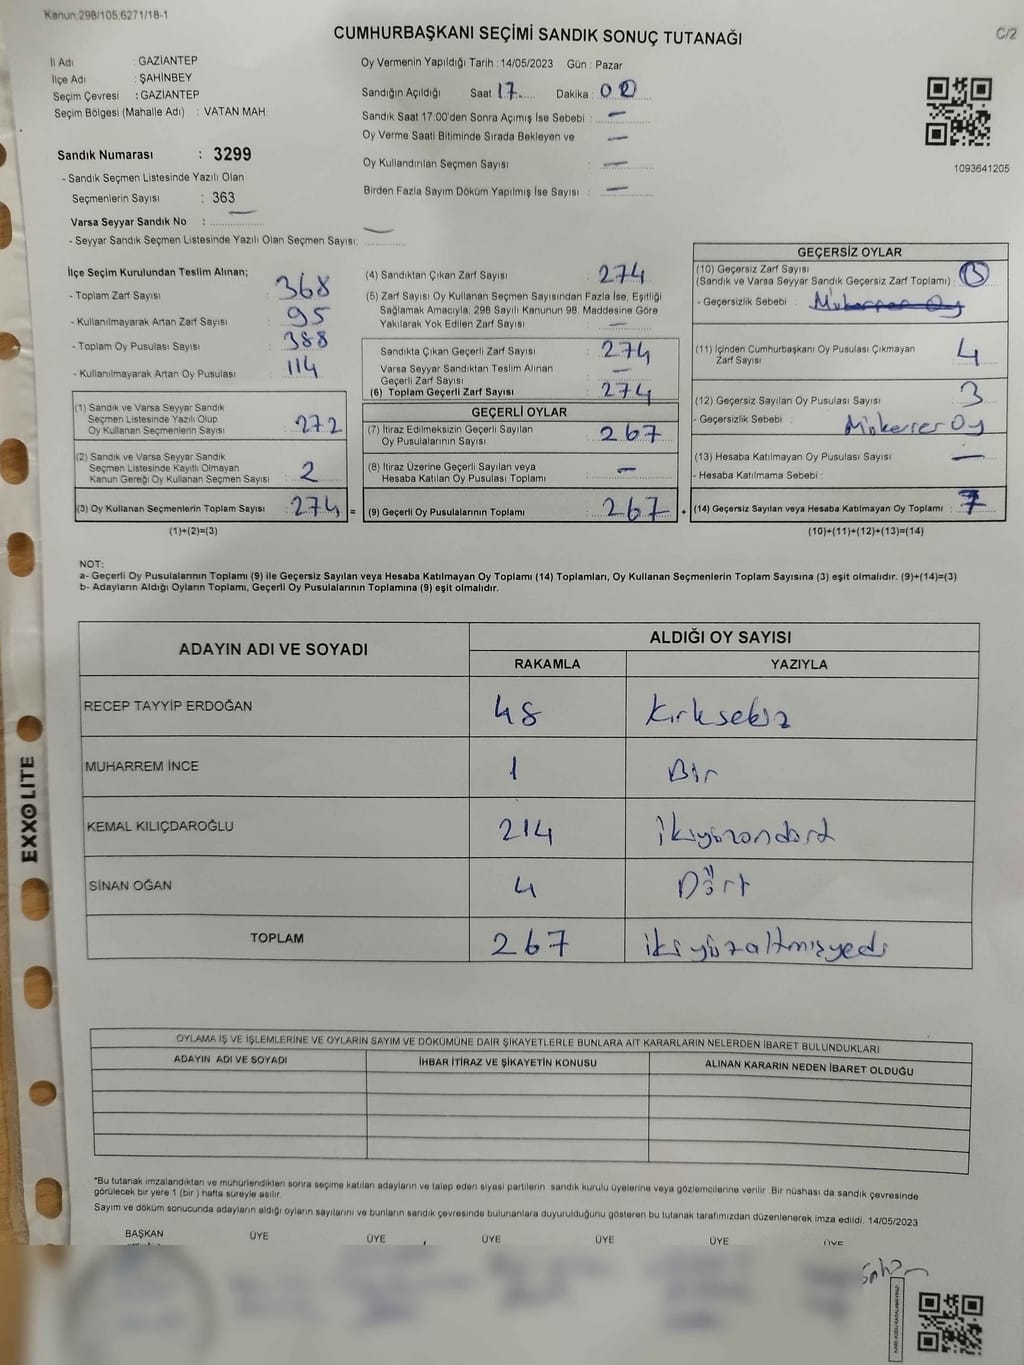 Kanun:298/105,6271/18-1
CUMHURBAŞKANI SEÇİMİ SANDIK SONUÇ TUTANAĞI
C/2
İl Adı : GAZİANTEP
İlçe Adı : ŞAHİNBEY
Seçim Çevresi : GAZİANTEP
Seçim Bölgesi (Mahalle Adı) : VATAN MAH.
Oy Vermenin Yapıldığı Tarih : 14/05/2023 Gün : Pazar
Sandığın Açıldığı Saat 17 Dakika : 00
Sandık Saat 17:00'den Sonra Açımış İse Sebebi : —
Oy Verme Saati Bitiminde Sırada Bekleyen ve —
Oy Kullandırılan Seçmen Sayısı : —
Birden Fazla Sayım Döküm Yapılmış İse Sayısı : —
1093641205
Sandık Numarası : 3299
- Sandık Seçmen Listesinde Yazılı Olan
Seçmenlerin Sayısı : 363
Varsa Seyyar Sandık No : —
- Seyyar Sandık Seçmen Listesinde Yazılı Olan Seçmen Sayısı: —
İlçe Seçim Kurulundan Teslim Alınan;
- Toplam Zarf Sayısı : 368
- Kullanılmayarak Artan Zarf Sayısı : 95
- Toplam Oy Pusulası Sayısı : 388
- Kullanılmayarak Artan Oy Pusulası : 114
(1) Sandık ve Varsa Seyyar Sandık
Seçmen Listesinde Yazılı Olup
Oy Kullanan Seçmenlerin Sayısı : 272
(2) Sandık ve Varsa Seyyar Sandık
Seçmen Listesinde Kayıtlı Olmayan
Kanun Gereği Oy Kullanan Seçmen Sayısı : 2
(3) Oy Kullanan Seçmenlerin Toplam Sayısı : 274 =
(1)+(2)=(3)
(4) Sandıktan Çıkan Zarf Sayısı : 274
(5) Zarf Sayısı Oy Kullanan Seçmen Sayısından Fazla İse, Eşitliği
Sağlamak Amacıyla; 298 Sayılı Kanunun 98. Maddesine Göre
Yakılarak Yok Edilen Zarf Sayısı : —
Sandıkta Çıkan Geçerli Zarf Sayısı : 274
Varsa Seyyar Sandıktan Teslim Alınan —
Geçerli Zarf Sayısı
(6) Toplam Geçerli Zarf Sayısı : 274
GEÇERLİ OYLAR
(7) İtiraz Edilmeksizin Geçerli Sayılan
Oy Pusulalarının Sayısı : 267
(8) İtiraz Üzerine Geçerli Sayılan veya
Hesaba Katılan Oy Pusulası Toplamı : —
(9) Geçerli Oy Pusulalarının Toplamı : 267 +
GEÇERSİZ OYLAR
(10) Geçersiz Zarf Sayısı
(Sandık ve Varsa Seyyar Sandık Geçersiz Zarf Toplamı) :
- Geçersizlik Sebebi : Mükerrer Oy
(11) İçinden Cumhurbaşkanı Oy Pusulası Çıkmayan
Zarf Sayısı : 4
(12) Geçersiz Sayılan Oy Pusulası Sayısı : 3
- Geçersizlik Sebebi : Mükerrer Oy
(13) Hesaba Katılmayan Oy Pusulası Sayısı : —
- Hesaba Katılmama Sebebi :
(14) Geçersiz Sayılan veya Hesaba Katılmayan Oy Toplamı : 7
(10)+(11)+(12)+(13)=(14)
NOT:
a- Geçerli Oy Pusulalarının Toplamı (9) ile Geçersiz Sayılan veya Hesaba Katılmayan Oy Toplamı (14) Toplamları, Oy Kullanan Seçmenlerin Toplam Sayısına (3) eşit olmalıdır. (9)+(14)=(3)
b- Adayların Aldığı Oyların Toplamı, Geçerli Oy Pusulalarının Toplamına (9) eşit olmalıdır.
ADAYIN ADI VE SOYADI
ALDIĞI OY SAYISI
RAKAMLA YAZIYLA
RECEP TAYYİP ERDOĞAN 48 Kırksekiz
MUHARREM İNCE 1 Bir
KEMAL KILIÇDAROĞLU 214 ikiyüzondört
SİNAN OĞAN 4 Dört
TOPLAM 267 ikiyüzaltmışyedi
EXXOLITE
OYLAMA İŞ VE İŞLEMLERİNE VE OYLARIN SAYIM VE DÖKÜMÜNE DAİR ŞİKAYETLERLE BUNLARA AİT KARARLARIN NELERDEN İBARET BULUNDUKLARI
ADAYIN ADI VE SOYADI İHBAR İTİRAZ VE ŞİKAYETİN KONUSU ALINAN KARARIN NEDEN İBARET OLDUĞU
*Bu tutanak imzalandıktan ve mühürlendikten sonra seçime katılan adayların ve talep eden siyasi partilerin sandık kurulu üyelerine veya gözlemcilerine verilir .Bir nüshası da sandık çevresinde
görülecek bir yere 1 (bir ) hafta süreyle asılır.
Sayım ve döküm sonucunda adayların aldığı oyların sayılarını ve bunların sandık çevresinde bulunanlara duyurulduğunu gösteren bu tutanak tarafımızdan düzenlenerek imza edildi. 14/05/2023
BAŞKAN ÜYE ÜYE ÜYE ÜYE ÜYE ÜYE